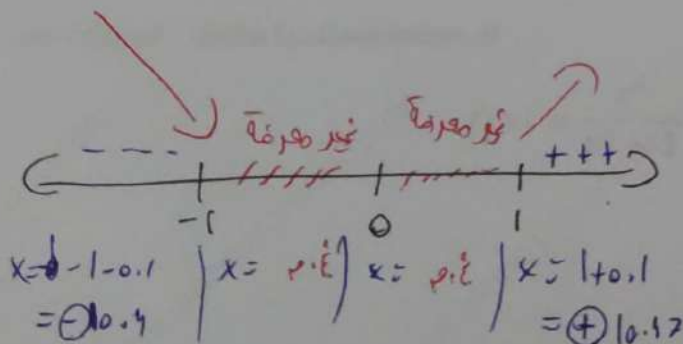 غير معرفة غير معرفة
- - - +++
-1 0 1
x= -1-0.1 | x= غ.م | x= غ.م | x= 1+0.1